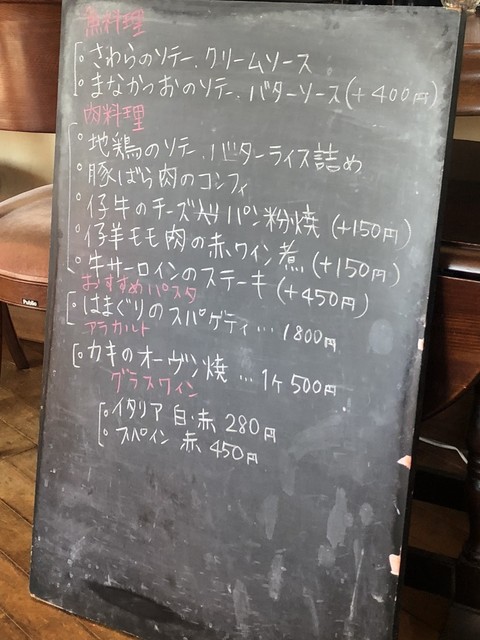 魚料理
さわらのソテー、クリームソース
まなかつおのソテー、バターソース(+400円)
肉料理
地鶏のソテー、バターライス詰め
豚ばら肉のコンフィ
仔牛のチーズ入りパン粉焼(+150円)
仔羊モモ肉の赤ワイン煮(+150円)
牛サーロインのステーキ(+450円)
おすすめパスタ
はまぐりのスパゲティ…1800円
アラカルト
カキのオーヴン焼…1ヶ500円
グラスワイン
イタリア 白・赤 280円
スペイン 赤 450円
Public